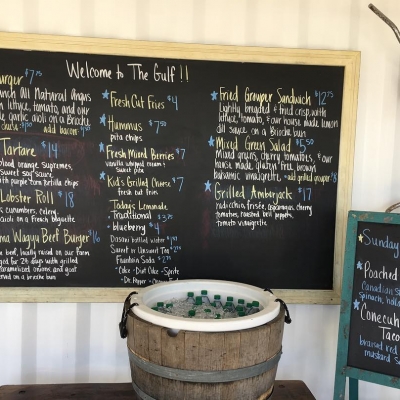 Welcome to The Gulf!!
Burger $7.75
Ranch All Natural Angus
on lettuce, tomato, and our
garlic aioli on a Brioche
add bacon
Tartare $14
blood orange supremes,
sweet soy sauce
with purple corn tortilla chips
Lobster Roll $18
cucumbers, celery,
on a French baguette
Wagyu Beef Burger $16
beef, locally raised on our farm
aged for 24 days with grilled
caramelized onions, and goat
served on a brioche bun
Fresh Cut Fries $4
Hummus $7.50
pita chips
Fresh Mixed Berries $7
vanilla whipped cream &
sweet pita
Kid's Grilled Cheese $7
fresh cut fries
Today's Lemonade
-Traditional $3.75
-blueberry $4
Dasani bottled water
Sweet or Unsweet Tea
Fountain Soda
-Coke -Diet Coke -Sprite
-Dr. Pepper
Fried Grouper Sandwich $12.75
Lightly breaded & fried crisp, with
lettuce, tomato, & our house made lemon
dill sauce on a Brioche bun
Mixed Green Salad $5.50
Mixed greens, cherry tomatoes, & our
house made gluten free brown
balsamic vinaigrette -add grilled grouper
Grilled Amberjack $17
radicchio, frisée, asparagus, cherry
tomatoes, roasted bell peppers,
tomato vinaigrette
Sunday
Poached
Canadian
spinach, holl
Conecuh
Taco
braised red
mustard s